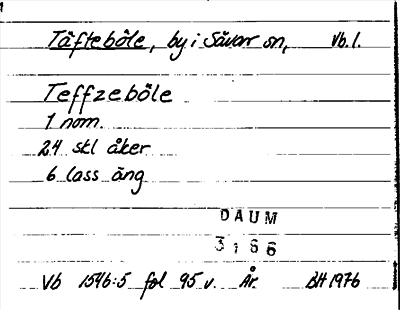 Täfteböle, by i Sävar sn, Vb.l.
Teffzeböle
1 nom.
24 skl åker
6 lass äng
DAUM
3166
Vb 1546:5 fol 95 v. År. BH 1976